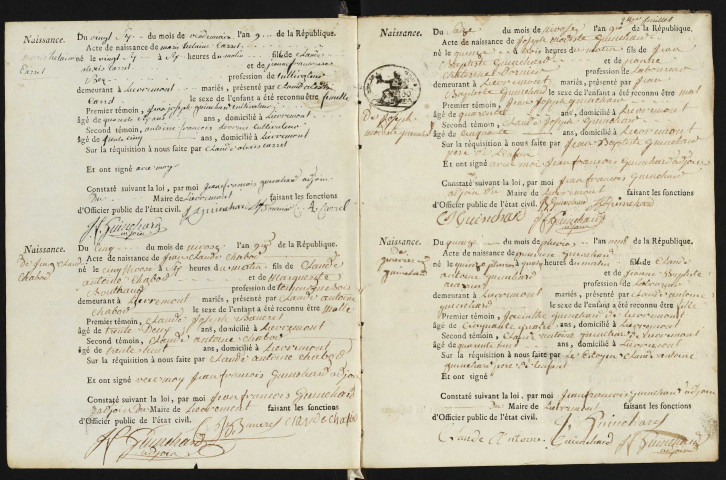 Naissance.
Du vingt six du mois de vendemiaire l'an 9 de la République.
Acte de naissance de marie helaine Carrel
né le vingt six à six heures du matin fille de claude
alexis Carrel et de jeanne francoise
profession de cultivateur
demeurant à Lievremont mariés, présenté par claude alexis
Carrel le sexe de l'enfant a été reconnu être femelle
Premier témoin, jean joseph guinchard cultivateur
âgé de quarante ans, domicilié à Lievremont
Second témoin, antoine francois cultivateur
âgé de trente cinq ans, domicilié à Lievremont
Sur la réquisition à nous faite par claude alexis carrel
Et ont signé avec moy
Constaté suivant la loi, par moi jeanfrancois guinchard adjoin
Du Maire de Lievremont faisant les fonctions
d'Officier public de l'état civil.
Guinchard
adjoin
Naissance.
De Jean Claude
Chabod
Du cinq du mois de nivose l'an 9me de la République.
Acte de naissance de Jean Claude Chabod
né le cinq nivose à six heures du matin fils de Claude
antoine Chabod et de Marguerite
profession de
demeurant à Lievremont mariés, présenté par Claude antoine
Chabod le sexe de l'enfant a été reconnu être Male
Premier témoin, Claude Joseph
âgé de trente Deux ans, domicilié à Lievremont
Second témoin, Claude antoine chabod
âgé de trente huit ans, domicilié à Lievremont
Sur la réquisition à nous faite par Claude antoine chabod
Et ont signé avec moy Jeanfrancois Guinchard adjoin
Constaté suivant la loi, par moi jean francois Guinchard
adjoin du Maire de Lievremont faisant les fonctions
d'Officier public de l'état civil.
Guinchard
adjoin
claude chabod
feuillet
Naissance.
De Joseph
modeste guinchard
Du seize du mois de nivose l'an 9me de la République.
Acte de naissance de Joseph modeste Guinchard
né le quinze à trois heures du matin fils de Jean
Baptiste Guinchard et de jeanne
profession de Laboureur
demeurant à Lievremont mariés, présenté par Jean
Baptiste Guinchard le sexe de l'enfant a été reconnu être mal
Premier témoin, Jean Joseph guinchard
âgé de quarante ans, domicilié à Lievremont
Second témoin, Claude Joseph Guinchard
âgé de cinquante ans, domicilié à Lievremont
Sur la réquisition à nous faite par Jean Baptiste Guinchard
pere de l'enfant
Et ont signé avec moi Jeanfrancois Guinchard adjoin
Constaté suivant la loi, par moi Jeanfrancois Guinchard
adjoin du Maire de Lievremont faisant les fonctions
d'Officier public de l'état civil.
Guinchard
Guinchard
adjoin
Naissance.
guinchard
Du quinze du mois de pluviose l'an neuf de la République.
Acte de naissance de guinchard
né le quinze pluviose à quatre heures du matin fille de Claude
antoine Guinchard et de Jeanne Baptiste
profession de Laboureur
demeurant à Lievremont mariés, présenté par Claude antoine
guinchard le sexe de l'enfant a été reconnu être fille
Premier témoin, hiacinthe guinchard de lievremont
âgé de cinquante quatre ans, domicilié à Lievremont
Second témoin, Claude antoine guinchard de lievremont
âgé de quarante ans, domicilié à Lievremont
Sur la réquisition à nous faite par Le citoyen claude antoine
guinchard pere de l'enfant
Et ont signé
Constaté suivant la loi, par moi Jeanfrancois guinchard adjoin
du Maire de Lievremont faisant les fonctions
d'Officier public de l'état civil.
Guinchard
Claude Antoine Guinchard
Guinchard
adjoin